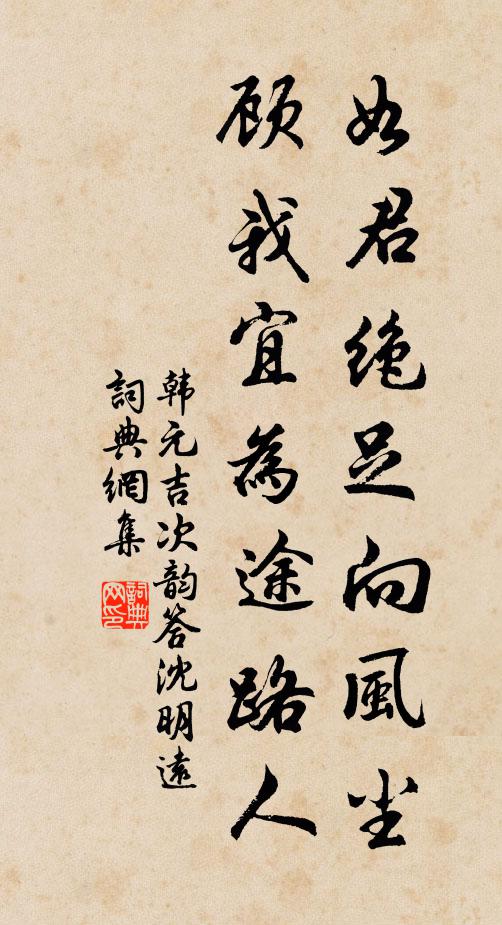 如君绝足向風尘
顾我宜為途路人
韩元吉次韵答沈明遠
詞典網集
詞典網印